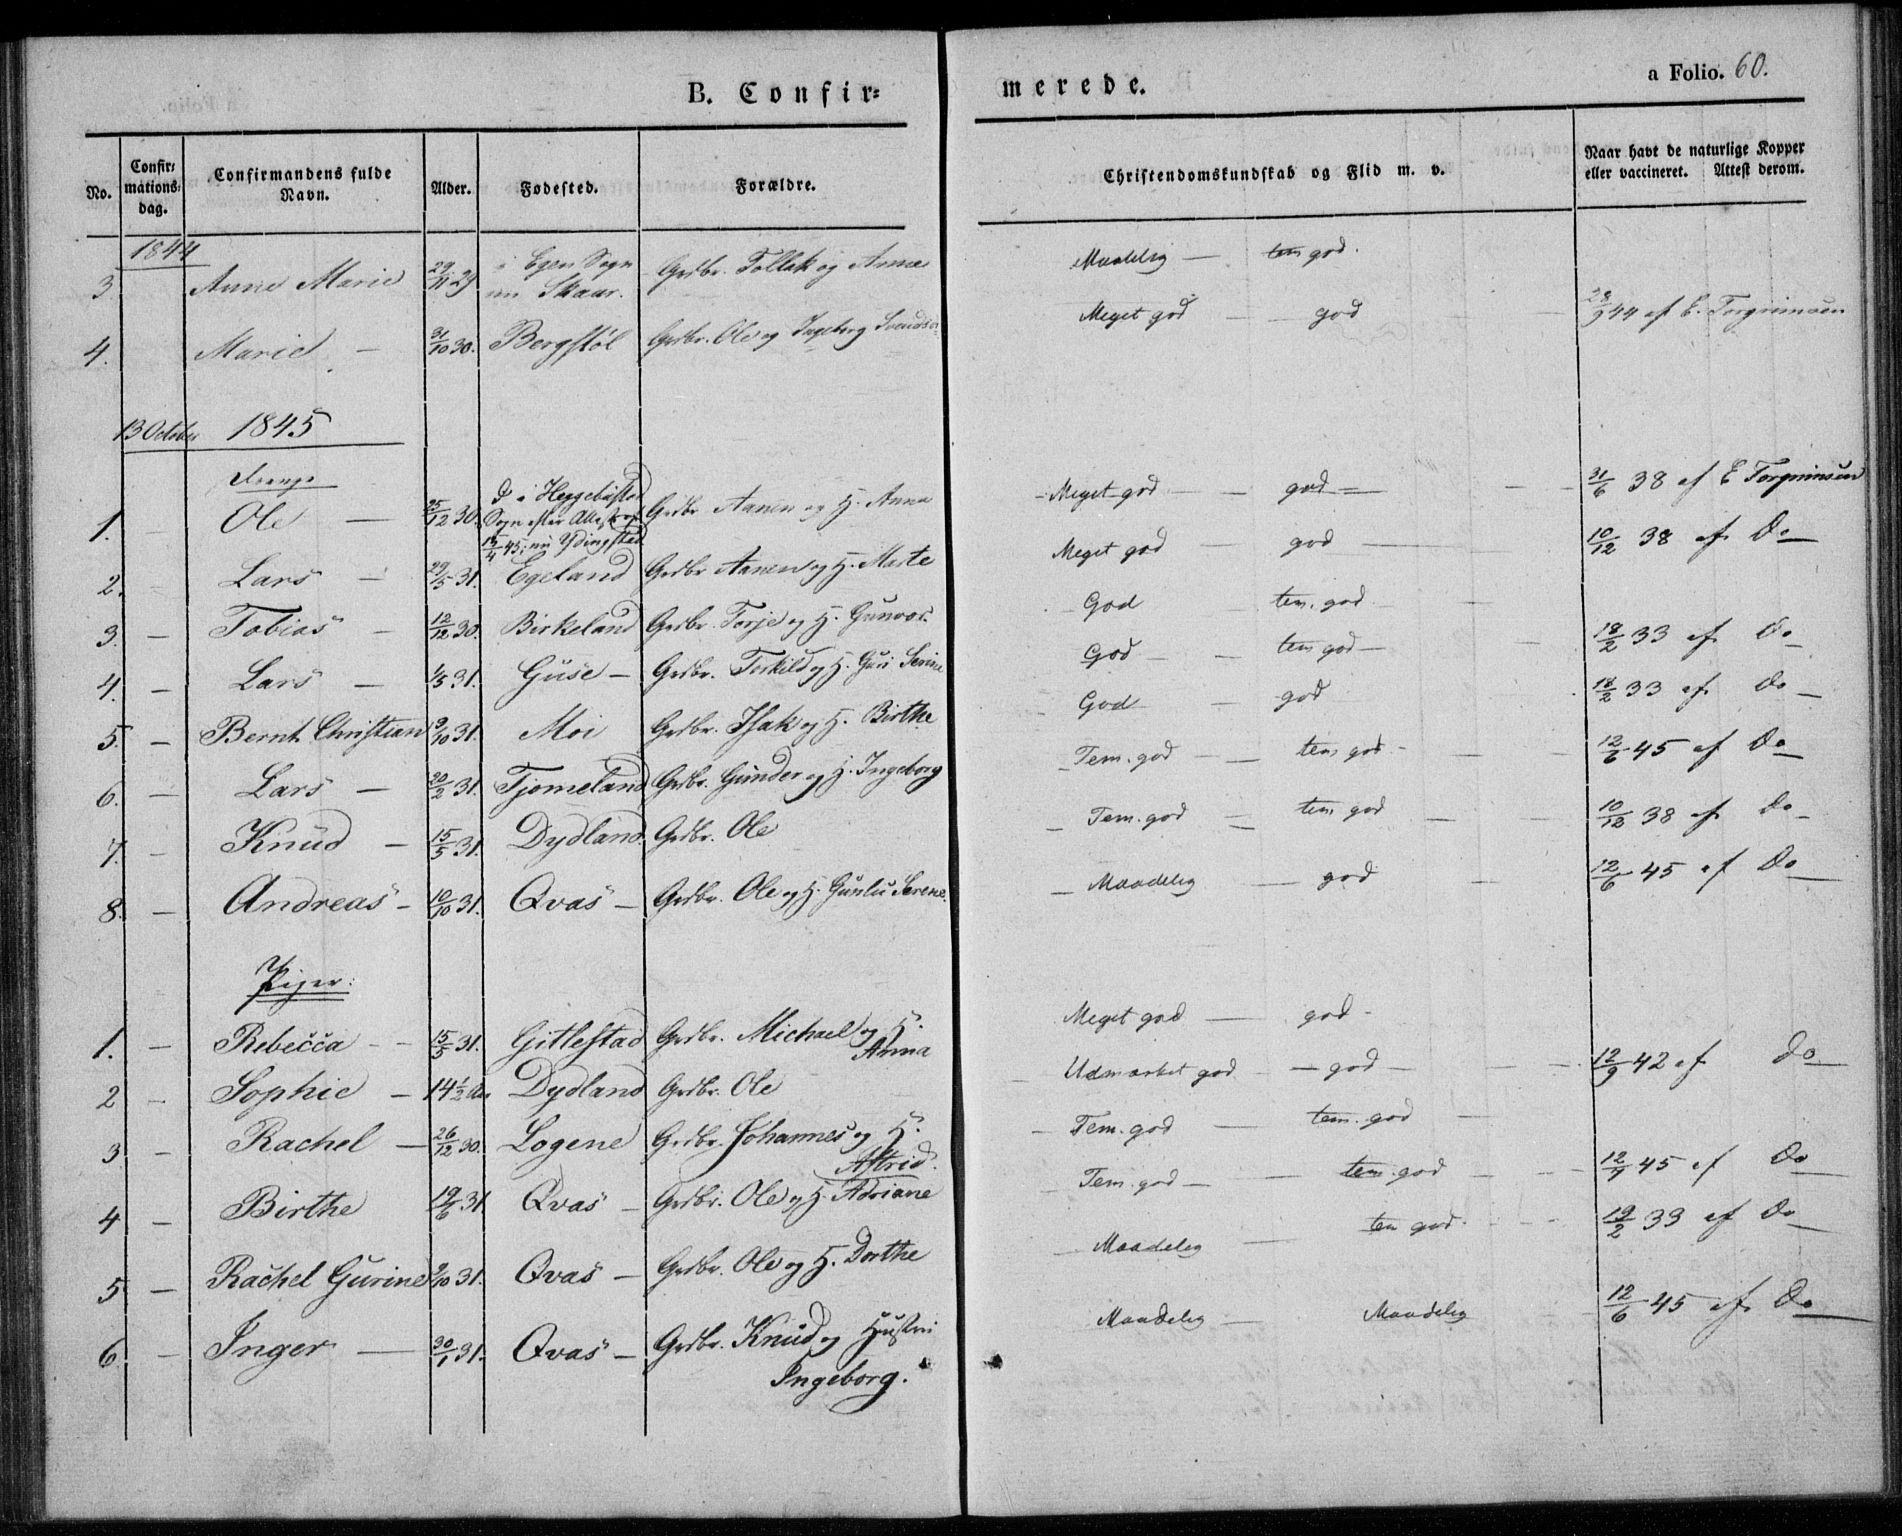 B. Confir=
merede.
a Folio. 60.
No. Confir= mations= dag. Confirmandens fulde Navn. Alder. Fødested. Forældre. Christendomskundskab og Flid m. v. Naar havt de naturlige Kopper eller vaccineret. Attest derom.
1844
3. Anne Marie 29/11 29 i Egen Sogn nu Skaar. Grdbr. Tollak og Anna Maadelig — tem god.
4. Marie — 31/10 30. Bergstøl Grdbr. Ole og Ingeborg Meget god — god — 28/9 44 af E. Torgrimsen
13 October 1845
Drenge
1. Ole — 25/12 30. D i Heggebøstad Sogn efter Attest af 15/4 45; nu Ydingstad Grdbr Aanen og H. Anna Meget god — god — 31/6 38 af E Torgrimsen
2. Lars — 29/5 31. Egeland Grdbr Aanen og H. Marte Meget god god — 10/12 38 af Do
3. — Tobias — 12/12 30. Birkeland Grdbr. Torje og H. Gunvor. God — tem. god —
4. — Lars — 1/5 31. Guse — Grdbr. Torkild og H. Guri Serine God — tem god — 18/2 33 af Do
5. — Bernt Christian 9/10 31. Moi Grdbr. Isak og H. Birthe God — god 18/2 33 af Do
6. — Lars — 20/2 31. Tjomeland Grdbr. Gunder og H. Ingeborg Tem. god — tem god — 12/6 45 af Do
7. — Knud — 15/5 31. Dydland. Grdbr. Ole Tem. god — tem god — 10/12 38 af Do
8. — Andreas — 10/10 31. Qvas — Grdbr. Ole og H. Gunlu Serene. Maadelig — god — 12/6 45 af Do
Piger:
1. — Rebecca — 15/5 31. Gitlestad Grdbr. Michael og H. Anna Meget god — god —
2 — Sophie — 14 1/2 Aar Dydland Grdbr. Ole Udmærket god — god — 12/9 42 af Do
3 — Rachel — 26/12 30. Logene Grdbr. Johannes og H. Astrid. Tem. god — tem. god —
4 — Birthe 19/6 31. Qvas — Grdbr. Ole og H. Adriane Tem. god — tem. god 12/9 45 af Do
5 — Rachel Gurine 9/10 31. Qvas — Grdbr. Ole og H. Dorthe Maadelig — tem god. 19/2 33 af Do
6 — Inger — 30/1 31. Qvas — Grdbr. Knud og Hustru Ingeborg. Maadelig — Maadelig 12/6 45 af Do